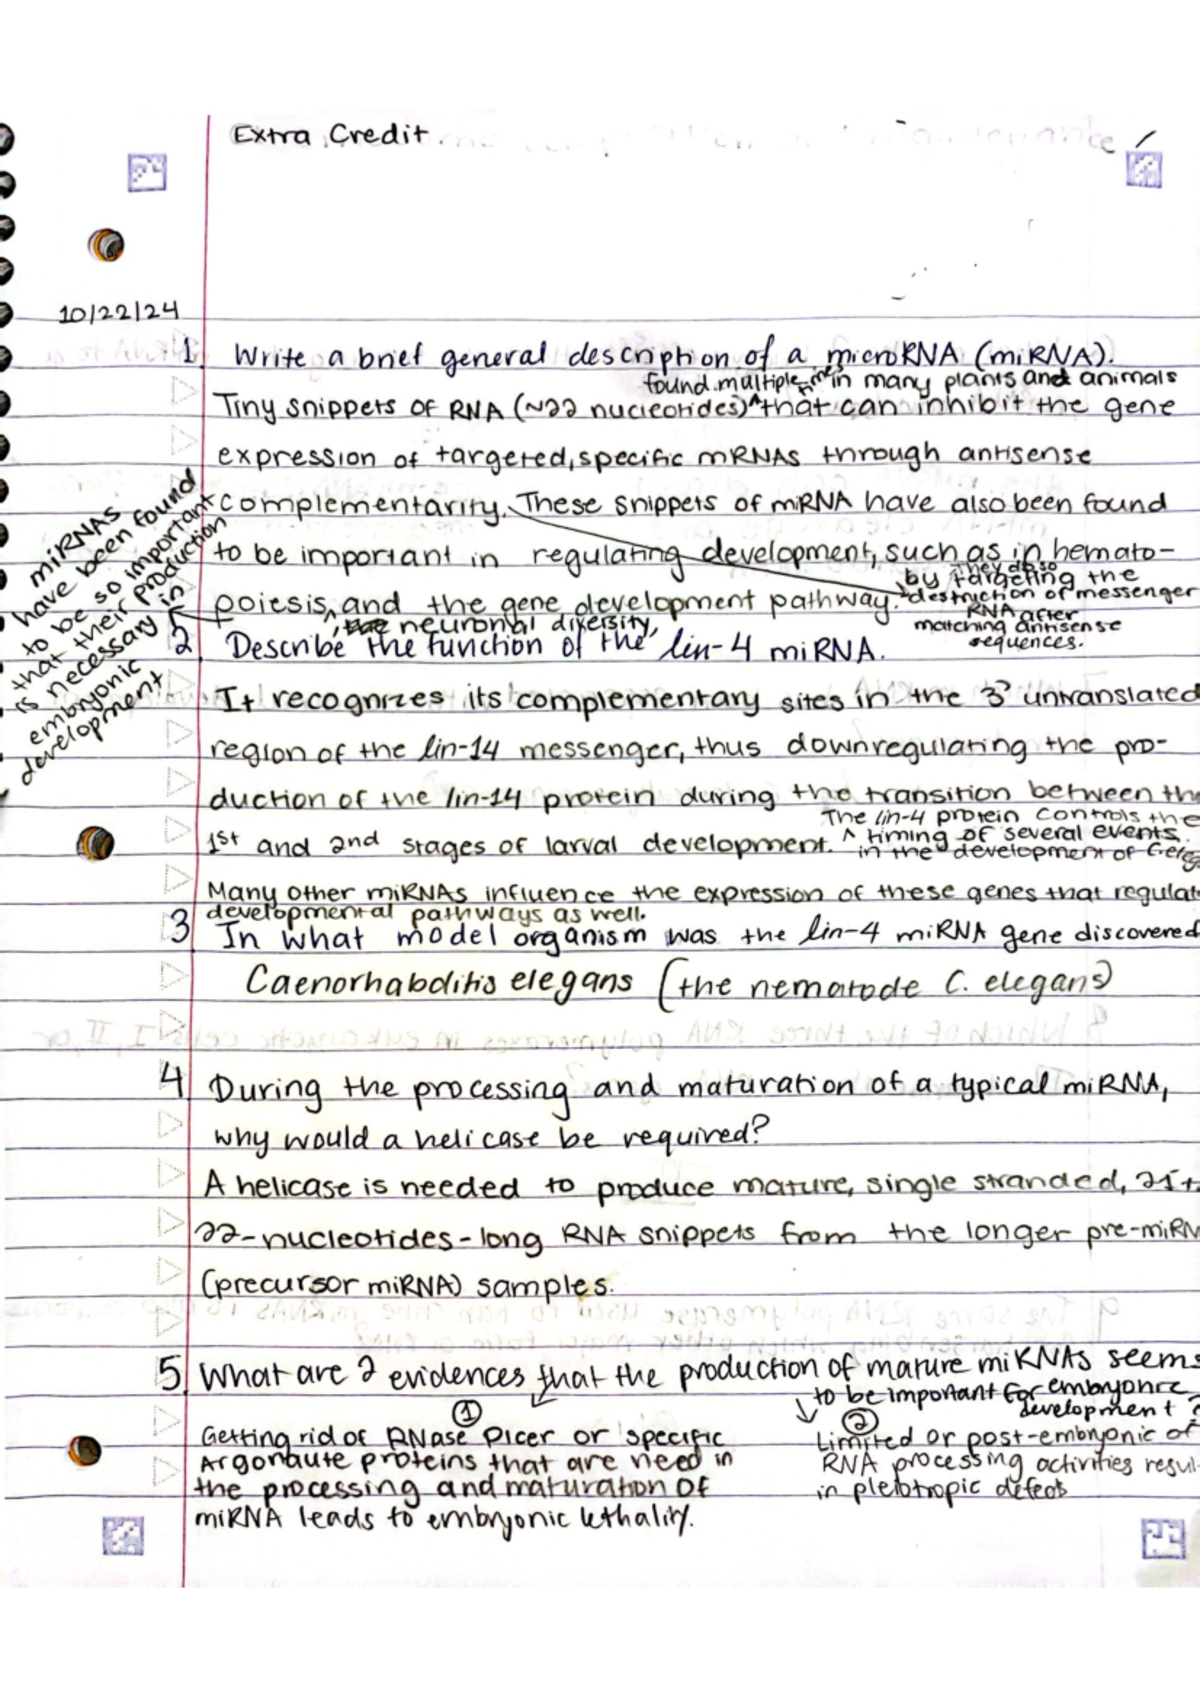 Extra Credit
10/22/24
1. Write a brief general description of a microRNA (miRNA).
found multiple times in many plants and animals
Tiny snippets of RNA (~22 nucleotides) ^ that can inhibit the gene
expression of targeted, specific mRNAs through antisense
complementarity. These snippets of miRNA have also been found
to be important in regulating development, such as in hemato-
poiesis, and the gene development pathway.
^, neuronal diversity,
They also
by targeting the
destruction of messenger
RNA after
matching antisense
sequences.
miRNAs
have been found
to be so important
that their production
is necessary in
embryonic
development
2 Describe the function of the lin-4 miRNA.
It recognizes its complementary sites in the 3' untranslated
region of the lin-14 messenger, thus downregulating the pro-
duction of the lin-14 protein during the transition between the
1st and 2nd stages of larval development. ^ The lin-4 protein controls the
timing of several events
in the development of C. eleg
Many other miRNAs influence the expression of these genes that regulat
developmental pathways as well.
3 In what model organism was the lin-4 miRNA gene discovered
Caenorhabditis elegans (the nematode C. elegans)
4 During the processing and maturation of a typical miRNA,
why would a helicase be required?
A helicase is needed to produce mature, single stranded, 21 t
22-nucleotides-long RNA snippets from the longer pre-miRN
(precursor miRNA) samples.
5 What are 2 evidences that the production of mature miRNAs seems
to be important for embryonic
development?
① Getting rid of RNase Dicer or specific
Argonaute proteins that are need in
the processing and maturation of
miRNA leads to embryonic lethality.
② Limited or post-embryonic of
RNA processing activities resul
in pleiotropic defects